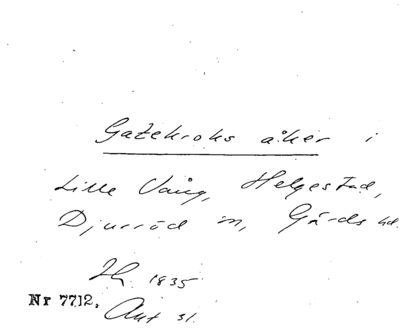 Gatekroks åker i
Lille Vång, Helgestad,
Djurröd in, Gärds hd.
Ih. 1835
Nr 7712. Aut 31.